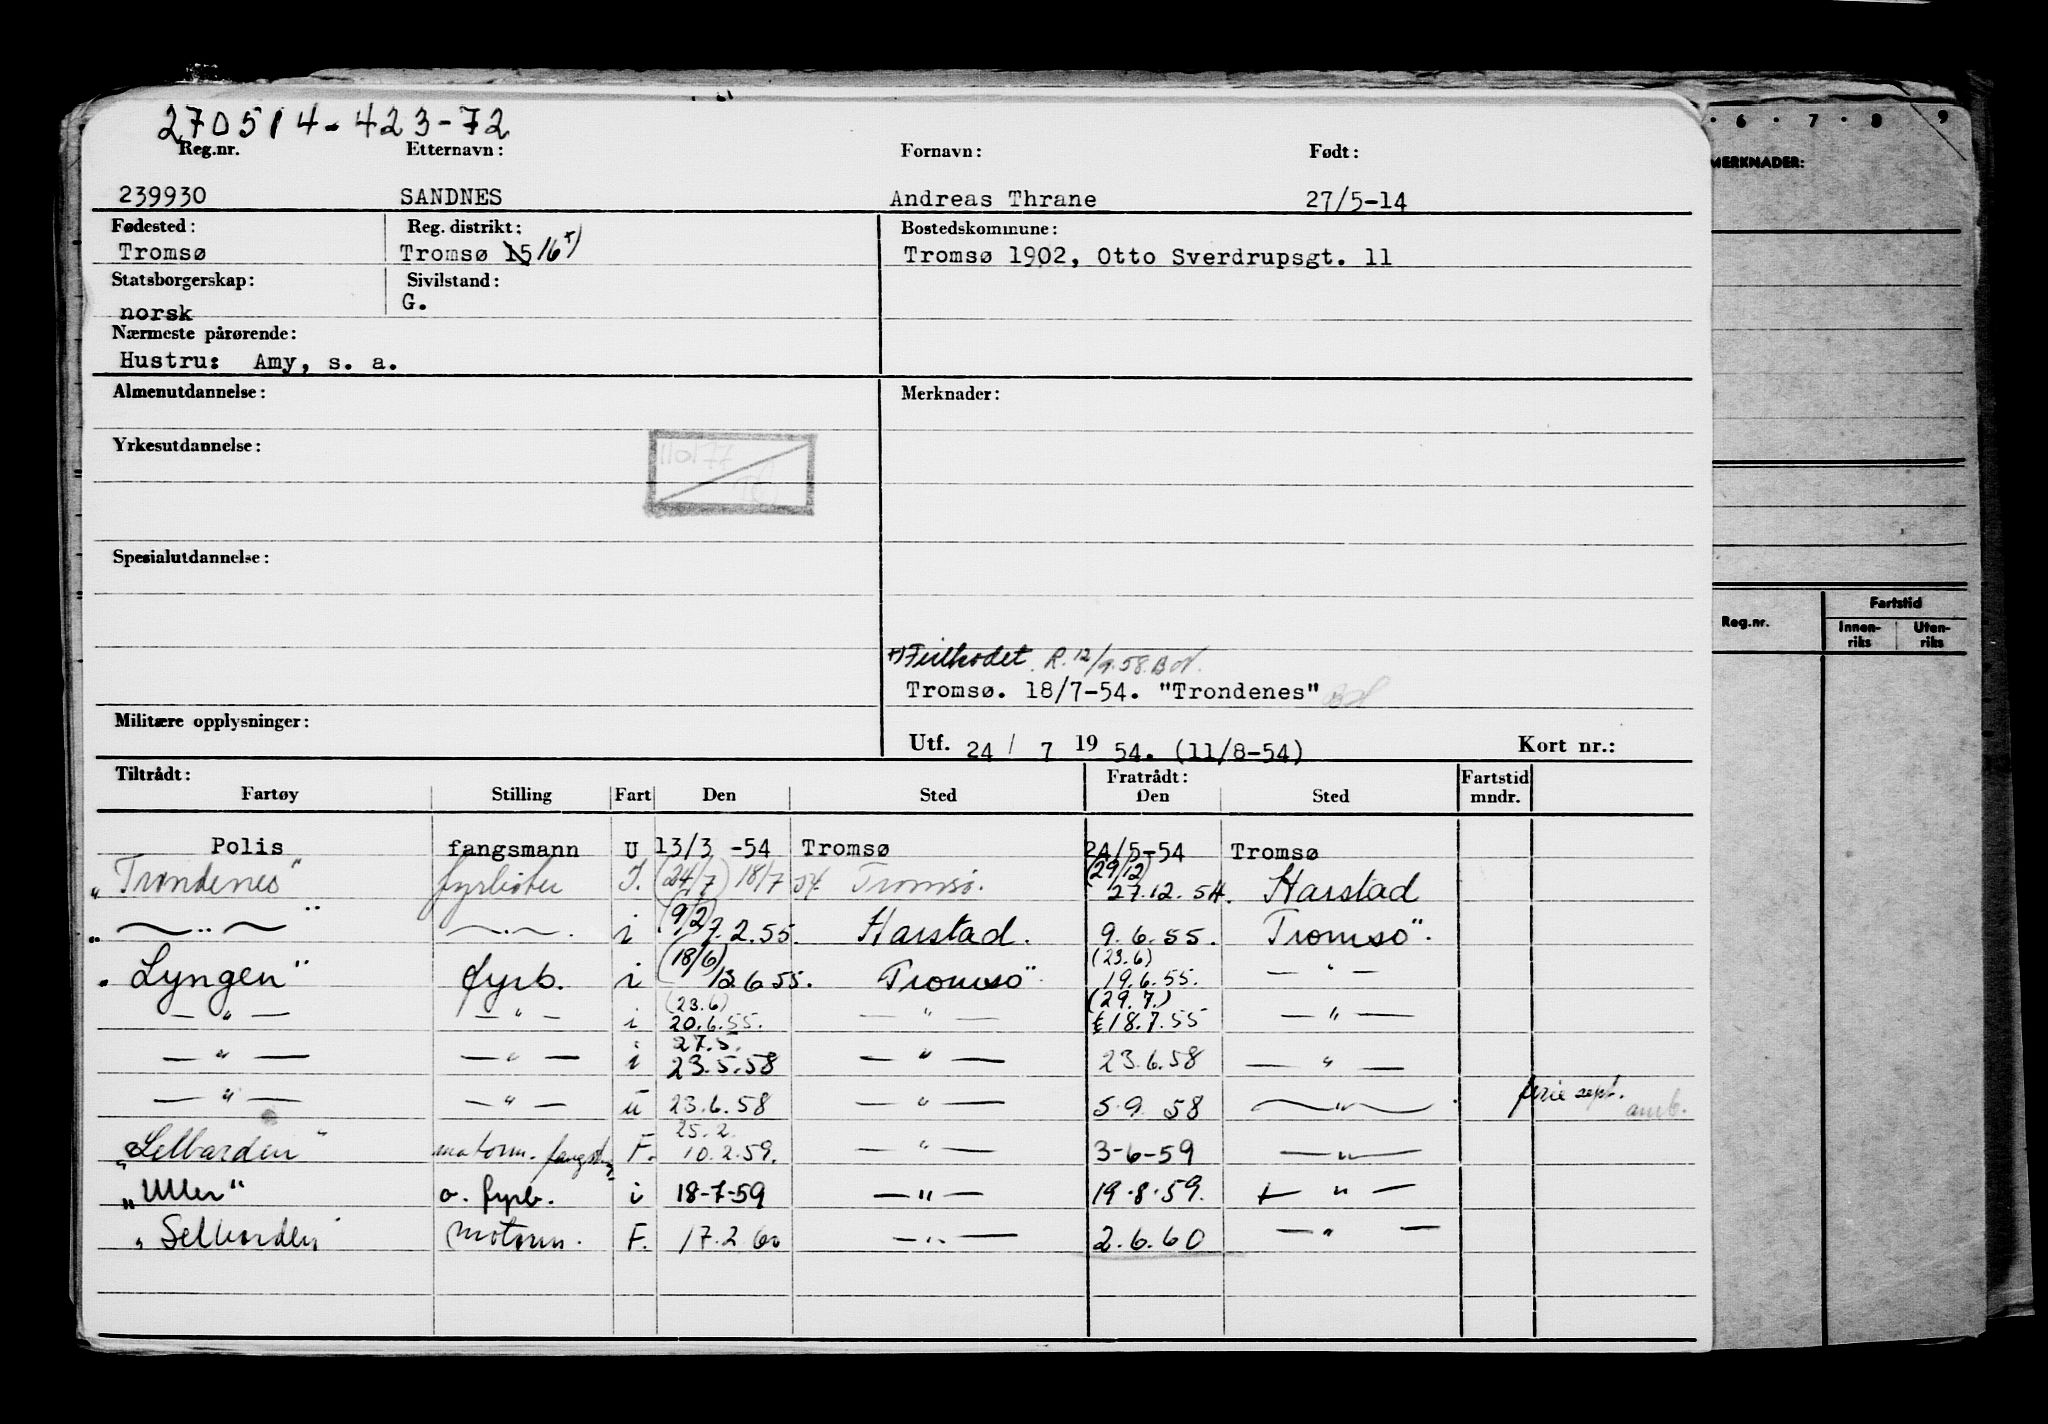 270514-423-72
Reg.nr. Etternavn: Fornavn: Født:
239930 SANDNES Andreas Thrane 27/5-14
Fødested: Reg. distrikt: Bostedskommune:
Tromsø Tromsø 15 16 +) Tromsø 1902, Otto Sverdrupsgt. 11
Statsborgerskap: Sivilstand:
norsk G.
Nærmeste pårørende:
Hustru: Amy, s. a.
Almenutdannelse: Merknader:
Yrkesutdannelse:
110177
Spesialutdannelse:
+) Feilkodet R. 12/9.58.
Tromsø. 18/7-54. "Trondenes"
Militære opplysninger:
Utf. 24/ 7 19 54. (11/8-54) Kort nr.:
Tiltrådt: Fratrådt: Fartstid
Fartøy Stilling Fart Den Sted Den Sted mndr.
Polis fangsmann U 13/3 -54 Tromsø 24/5-54 Tromsø
"Trondenes" fyrbøter I. (24/7) 18/7 54. Tromsø. (29/12) 27.12.54. Harstad
" —..— " —..—. i (9/2) 7.2.55. Harstad. 9.6.55. Tromsø.
"Lyngen" fyrb. i (18/6) 13.6.55. Tromsø (23.6) 19.6.55. — " —
— " — — " — i (23.6) 20.6.55. — " — (29.7.) 18.7.55 — " —
— " — — " — i 27.5. 23.5.58 — " — 23.6.58 — " —
— " — — " — u 23.6.58 — " — 5.9.58 — " — . ferie sept.
"Selbarden" motorm. F. 25.2. 10.2.59. — " — 3-6-59 — " —
"Uller" o. fyrb. i 18-7-59 — " — 19.8.59. — " —
"Selbarden" motorm. F. 17.2.60 — " — 2.6.60 — " —
6 . 7 . 8 9
MERKNADER:
Reg.nr. Fartstid
Innen-riks Uten-riks